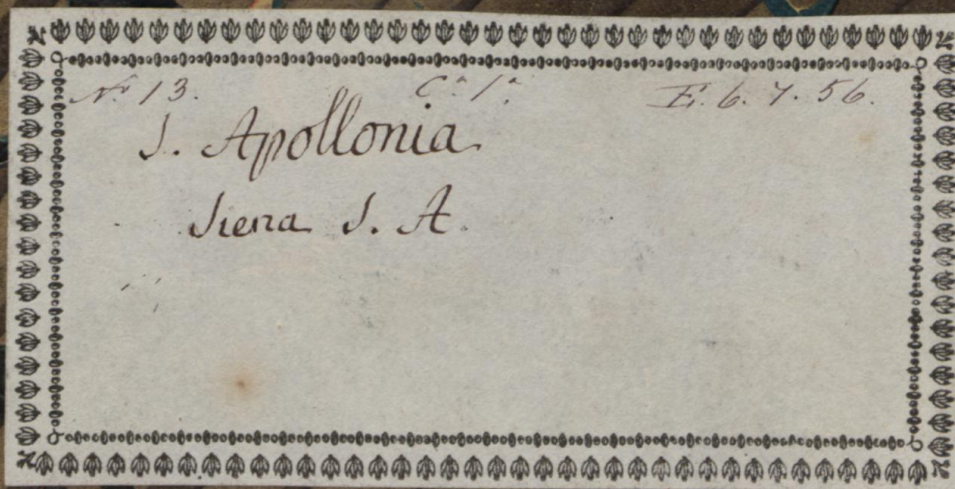 Nº 13. Cª 1ª E. 6. 7. 56.
S. Apollonia
Sierra S. A.